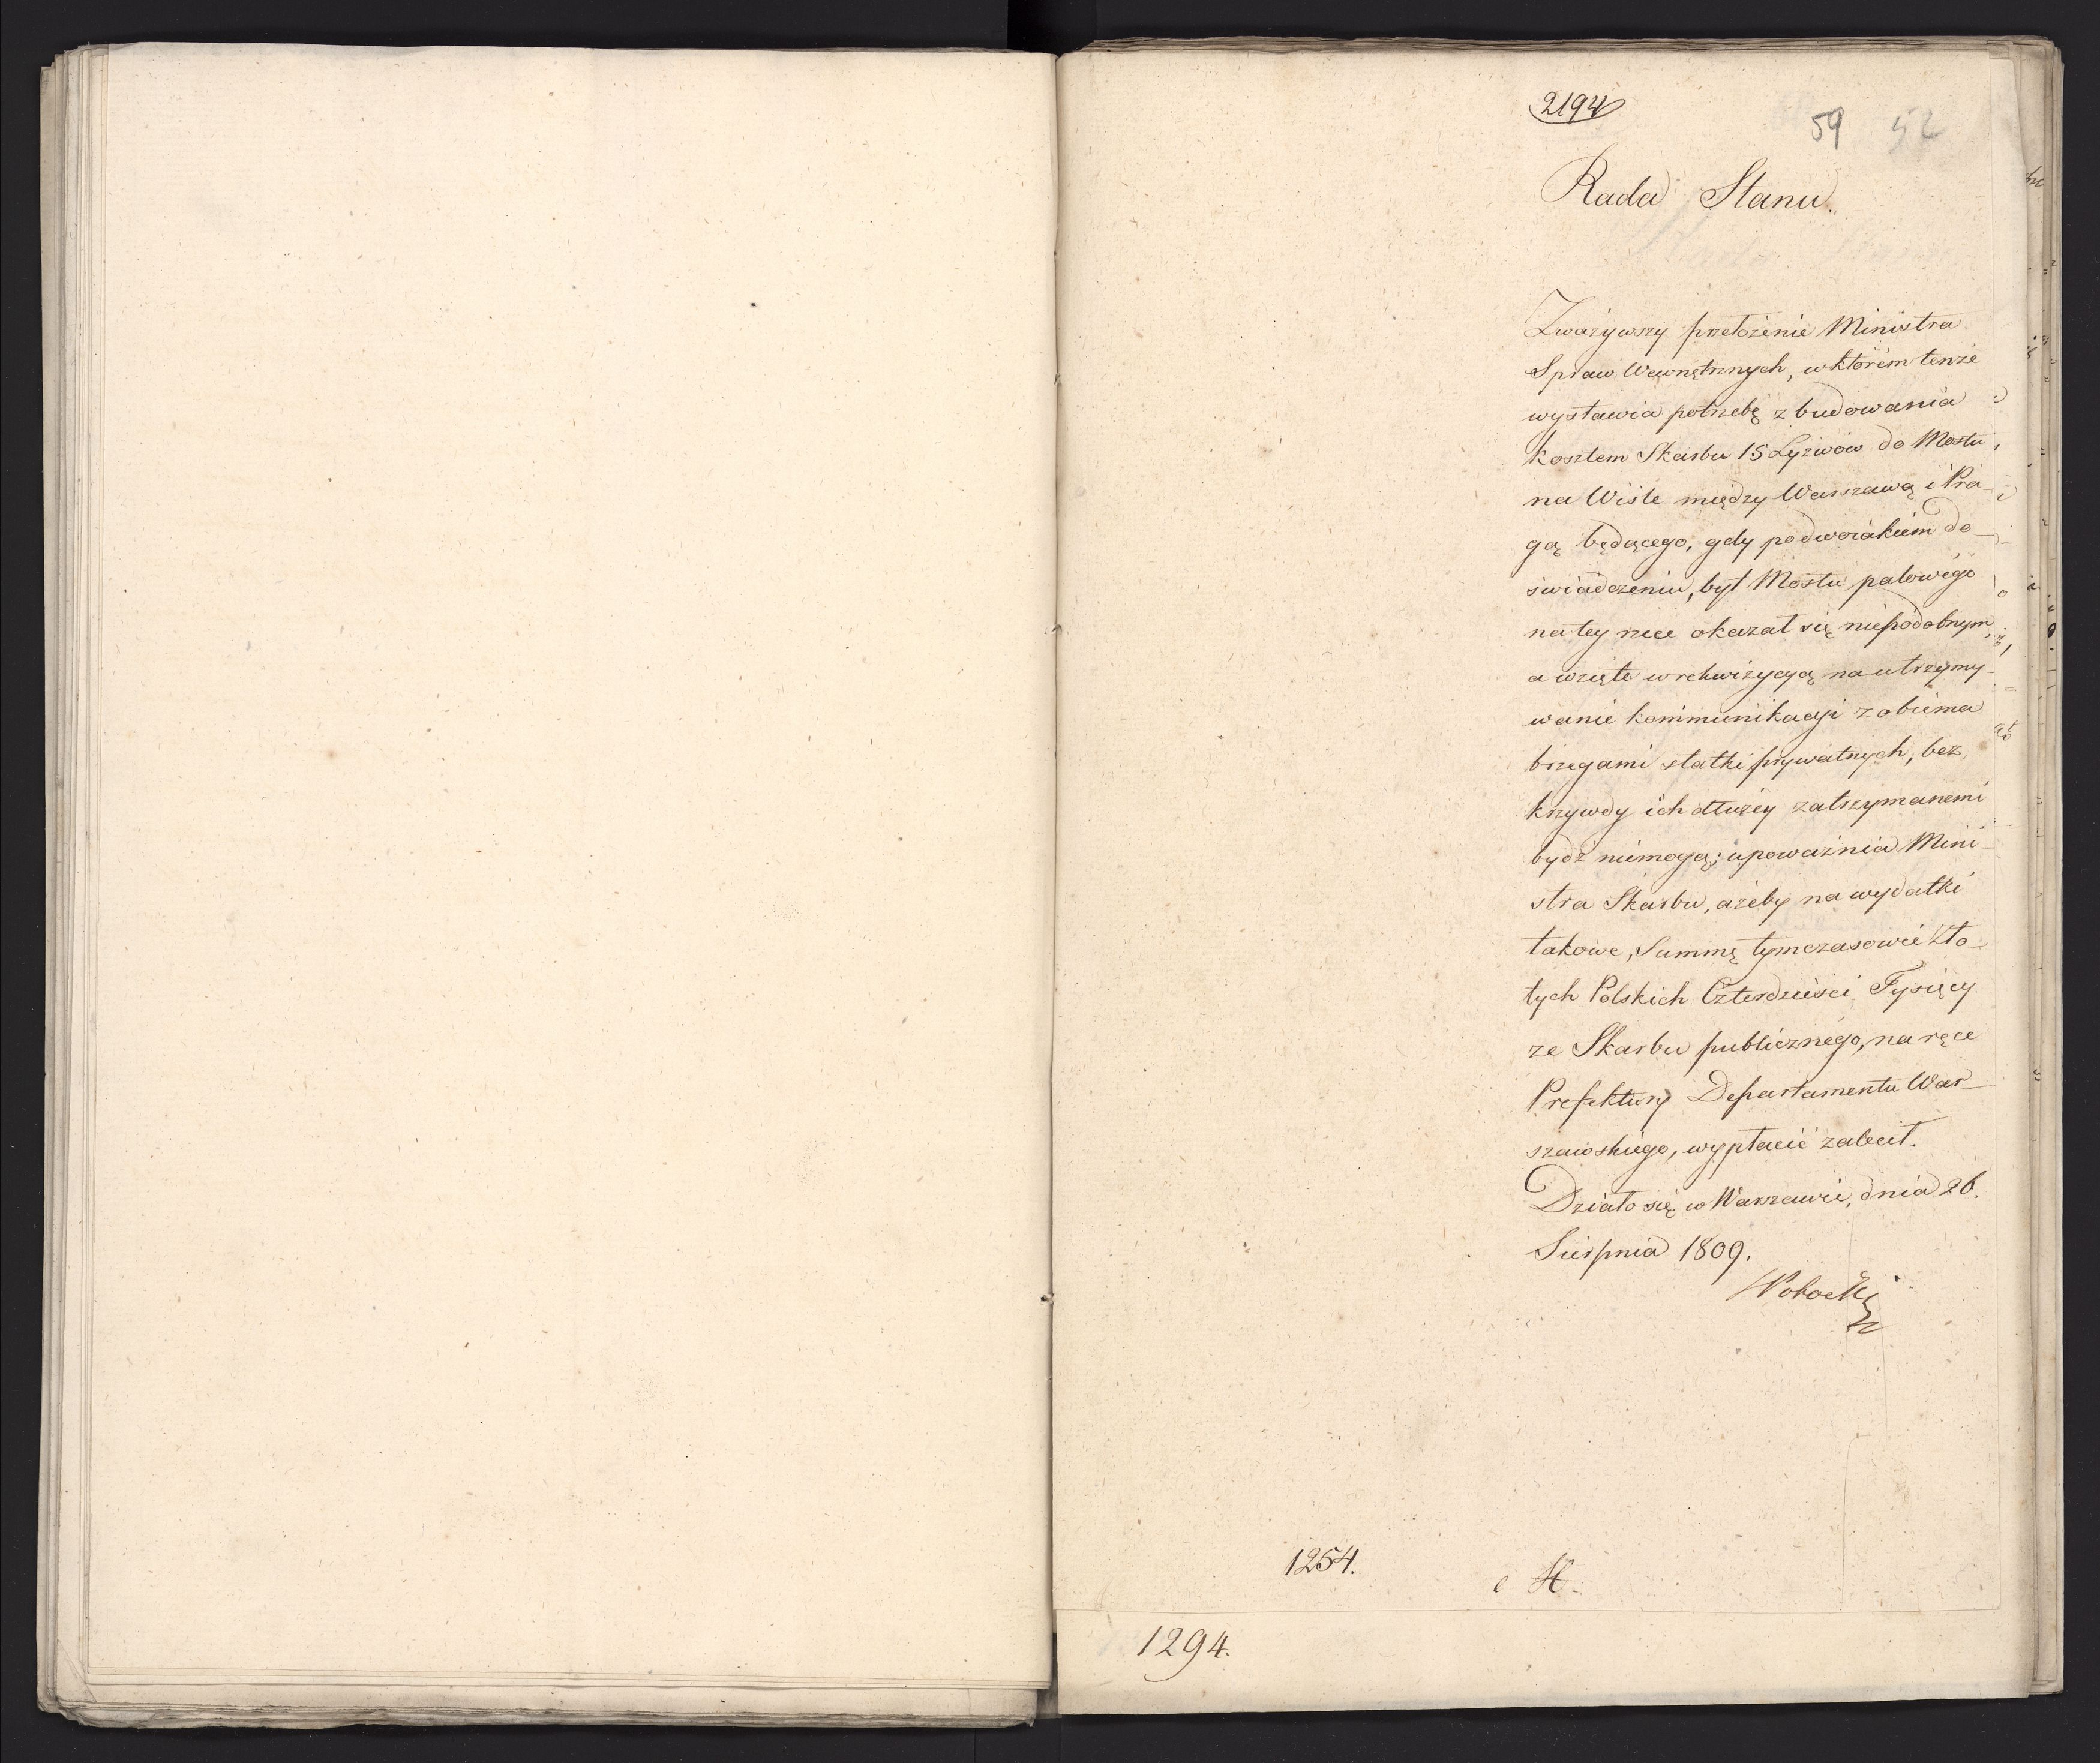 2194
59 52
Rada Stanu.
Zważywszy przełożenie Ministra
Spraw Wewnętrznych, w którém tenże
wystawia potrzebę zbudowania
kosztem Skarbu 15 Łyżwów do Mostu,
na Wiśle między Warszawą i Pra-
gą będącego, gdy po dwoiakiem do-
świadczeniu, był Mostu palowégo
na tey rzece okazał się niepodobnym,
a wzięte w rekwizycyą na utrzymy-
wanie kommunikacyi z obiema
brzegami statki prywatnych, bez
krzywdy ich dłużey zatrzymanemi
bydź niemogą; upoważnia Mini-
stra Skarbu, ażeby na wydatki
takowe, Summę tymczasowie Zło-
tych Polskich Czterdzieści Tysięcy
ze Skarbu publicznégo, na ręce
Prefektury Departamentu War-
szawskiego, wypłacić zalecił.
Działo się w Warszawie, dnia 26.
Sierpnia 1809.
1254.
1294.